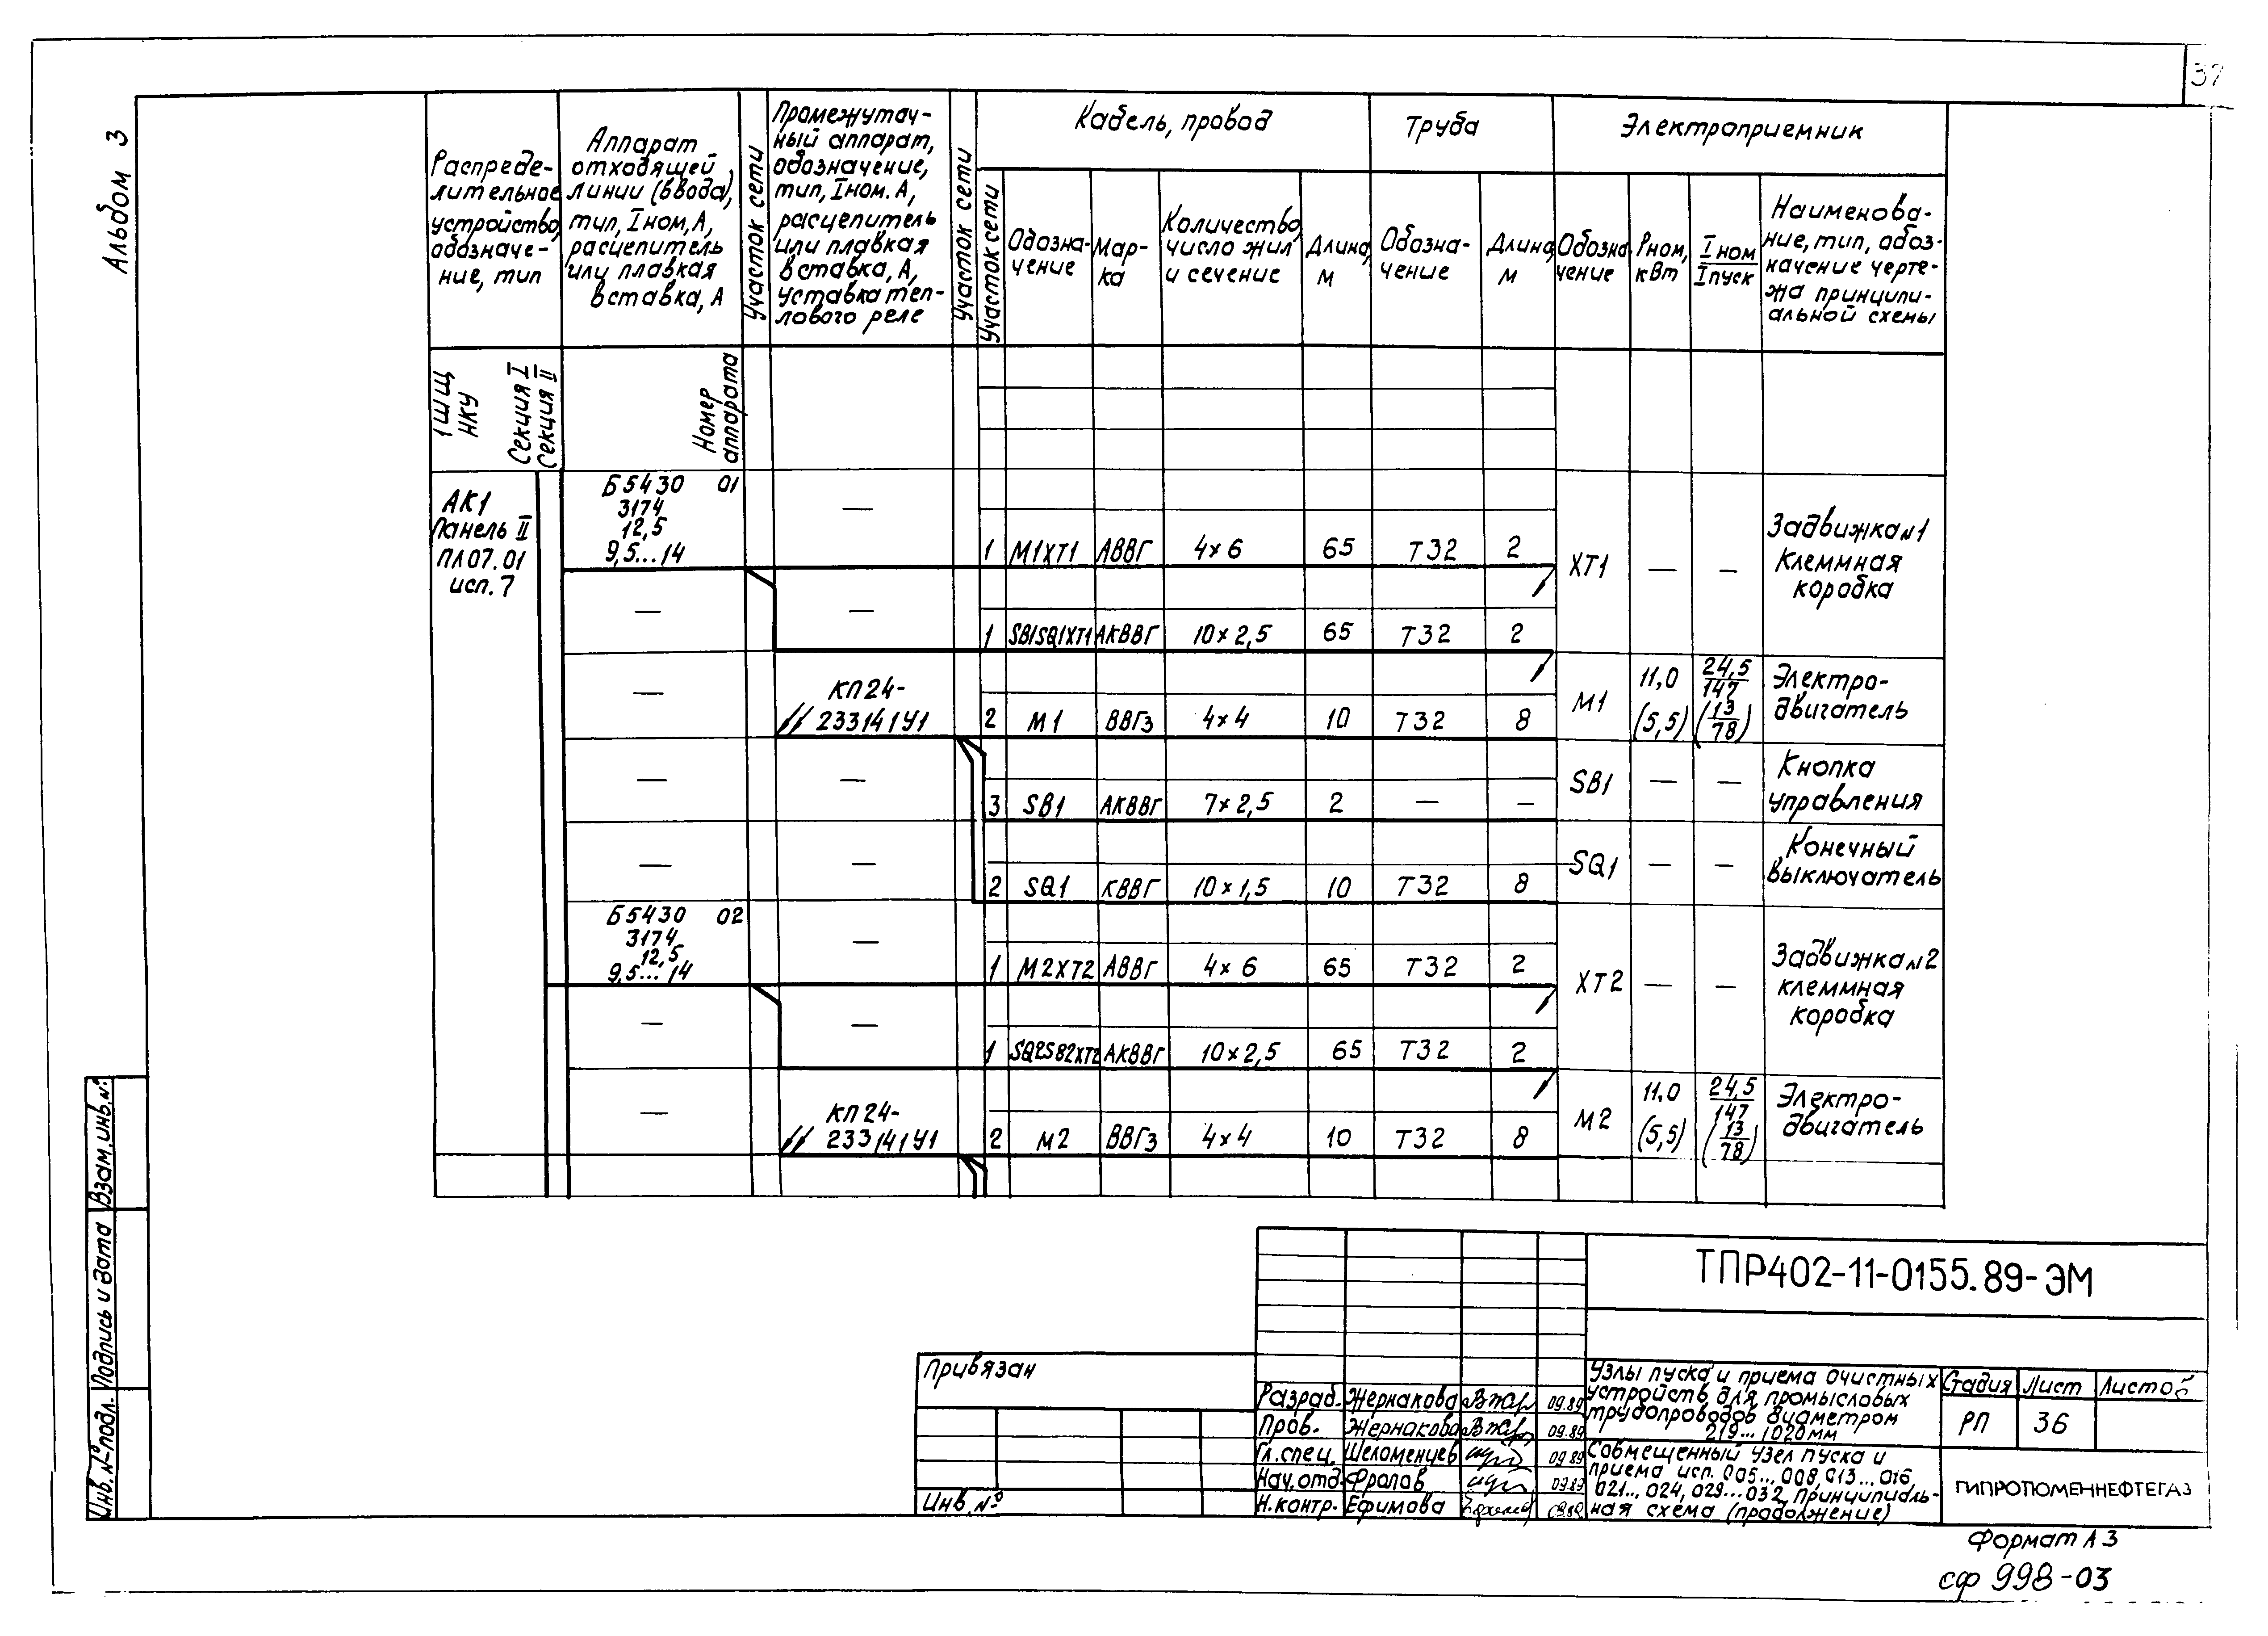 37
Альбом 3
Распреде-
лительное
устройство,
обозначе-
ние, тип
Аппарат
отходящей
линии (ввода),
тип, Iном, А,
расцепитель
или плавкая
вставка, А
Участок сети
Промежуточ-
ный аппарат,
обозначение,
тип, Iном. А,
расцепитель
или плавкая
вставка, А,
уставка теп-
лового реле
Участок сети
Участок сети
Кабель, провод
Обозна-
чение
Мар-
ка
Количество,
число жил
и сечение
Длина,
м
Труба
Обозна-
чение
Длина,
м
Электроприемник
Обозна-
чение
Рном,
кВт
Iном
Iпуск
Наименова-
ние, тип, обоз-
начение черте-
жа принципи-
альной схемы
1ШЩ
НКУ
Секция I
Секция II
Номер
аппарата
АК1
Панель II
ПЛ07.01
исп. 7
Б5430 01
3174
12,5
9,5...14
—
1 М1ХТ1 АВВГ 4×6 65 Т32 2
ХТ1 — —
Задвижка №1
Клеммная
коробка
— —
1 SB1SQ1XT1 АКВВГ 10×2,5 65 Т32 2
—
КП24-
233141У1
2 М1 ВВГз 4×4 10 Т32 8
М1
11,0
(5,5)
24,5
147
(13
78)
Электро-
двигатель
— —
3 SB1 АКВВГ 7×2,5 2 — —
SB1 — —
Кнопка
управления
— —
2 SQ1 КВВГ 10×1,5 10 Т32 8
SQ1 — —
Конечный
выключатель
Б5430 02
3174
12,5
9,5...14
—
1 М2ХТ2 АВВГ 4×6 65 Т32 2
ХТ2 — —
Задвижка №2
клеммная
коробка
— —
1 SQ2SB2XT2 АКВВГ 10×2,5 65 Т32 2
—
КП24-
233141У1
2 М2 ВВГз 4×4 10 Т32 8
М2
11,0
(5,5)
24,5
147
(13
78)
Электро-
двигатель
Взам. инв. №
Подпись и дата
Инв. № подл.
ТПР402-11-0155.89-ЭМ
Привязан
Инв. №
Разраб. Жернакова 09.89
Пров. Жернакова 09.89
Гл. спец. Шеломенцев 09.89
Нач. отд. Фролов 09.89
Н. контр. Ефимова 09.89
Узлы пуска и приема очистных
устройств для промысловых
трубопроводов диаметром
219...1020мм
Стадия Лист Листов
РП 36
Совмещенный узел пуска и
приема исп. 005...008, 013...016,
021...024, 029...032. Принципиаль-
ная схема (продолжение)
ГИПРОТЮМЕННЕФТЕГАЗ
Формат А3
сф 998-03